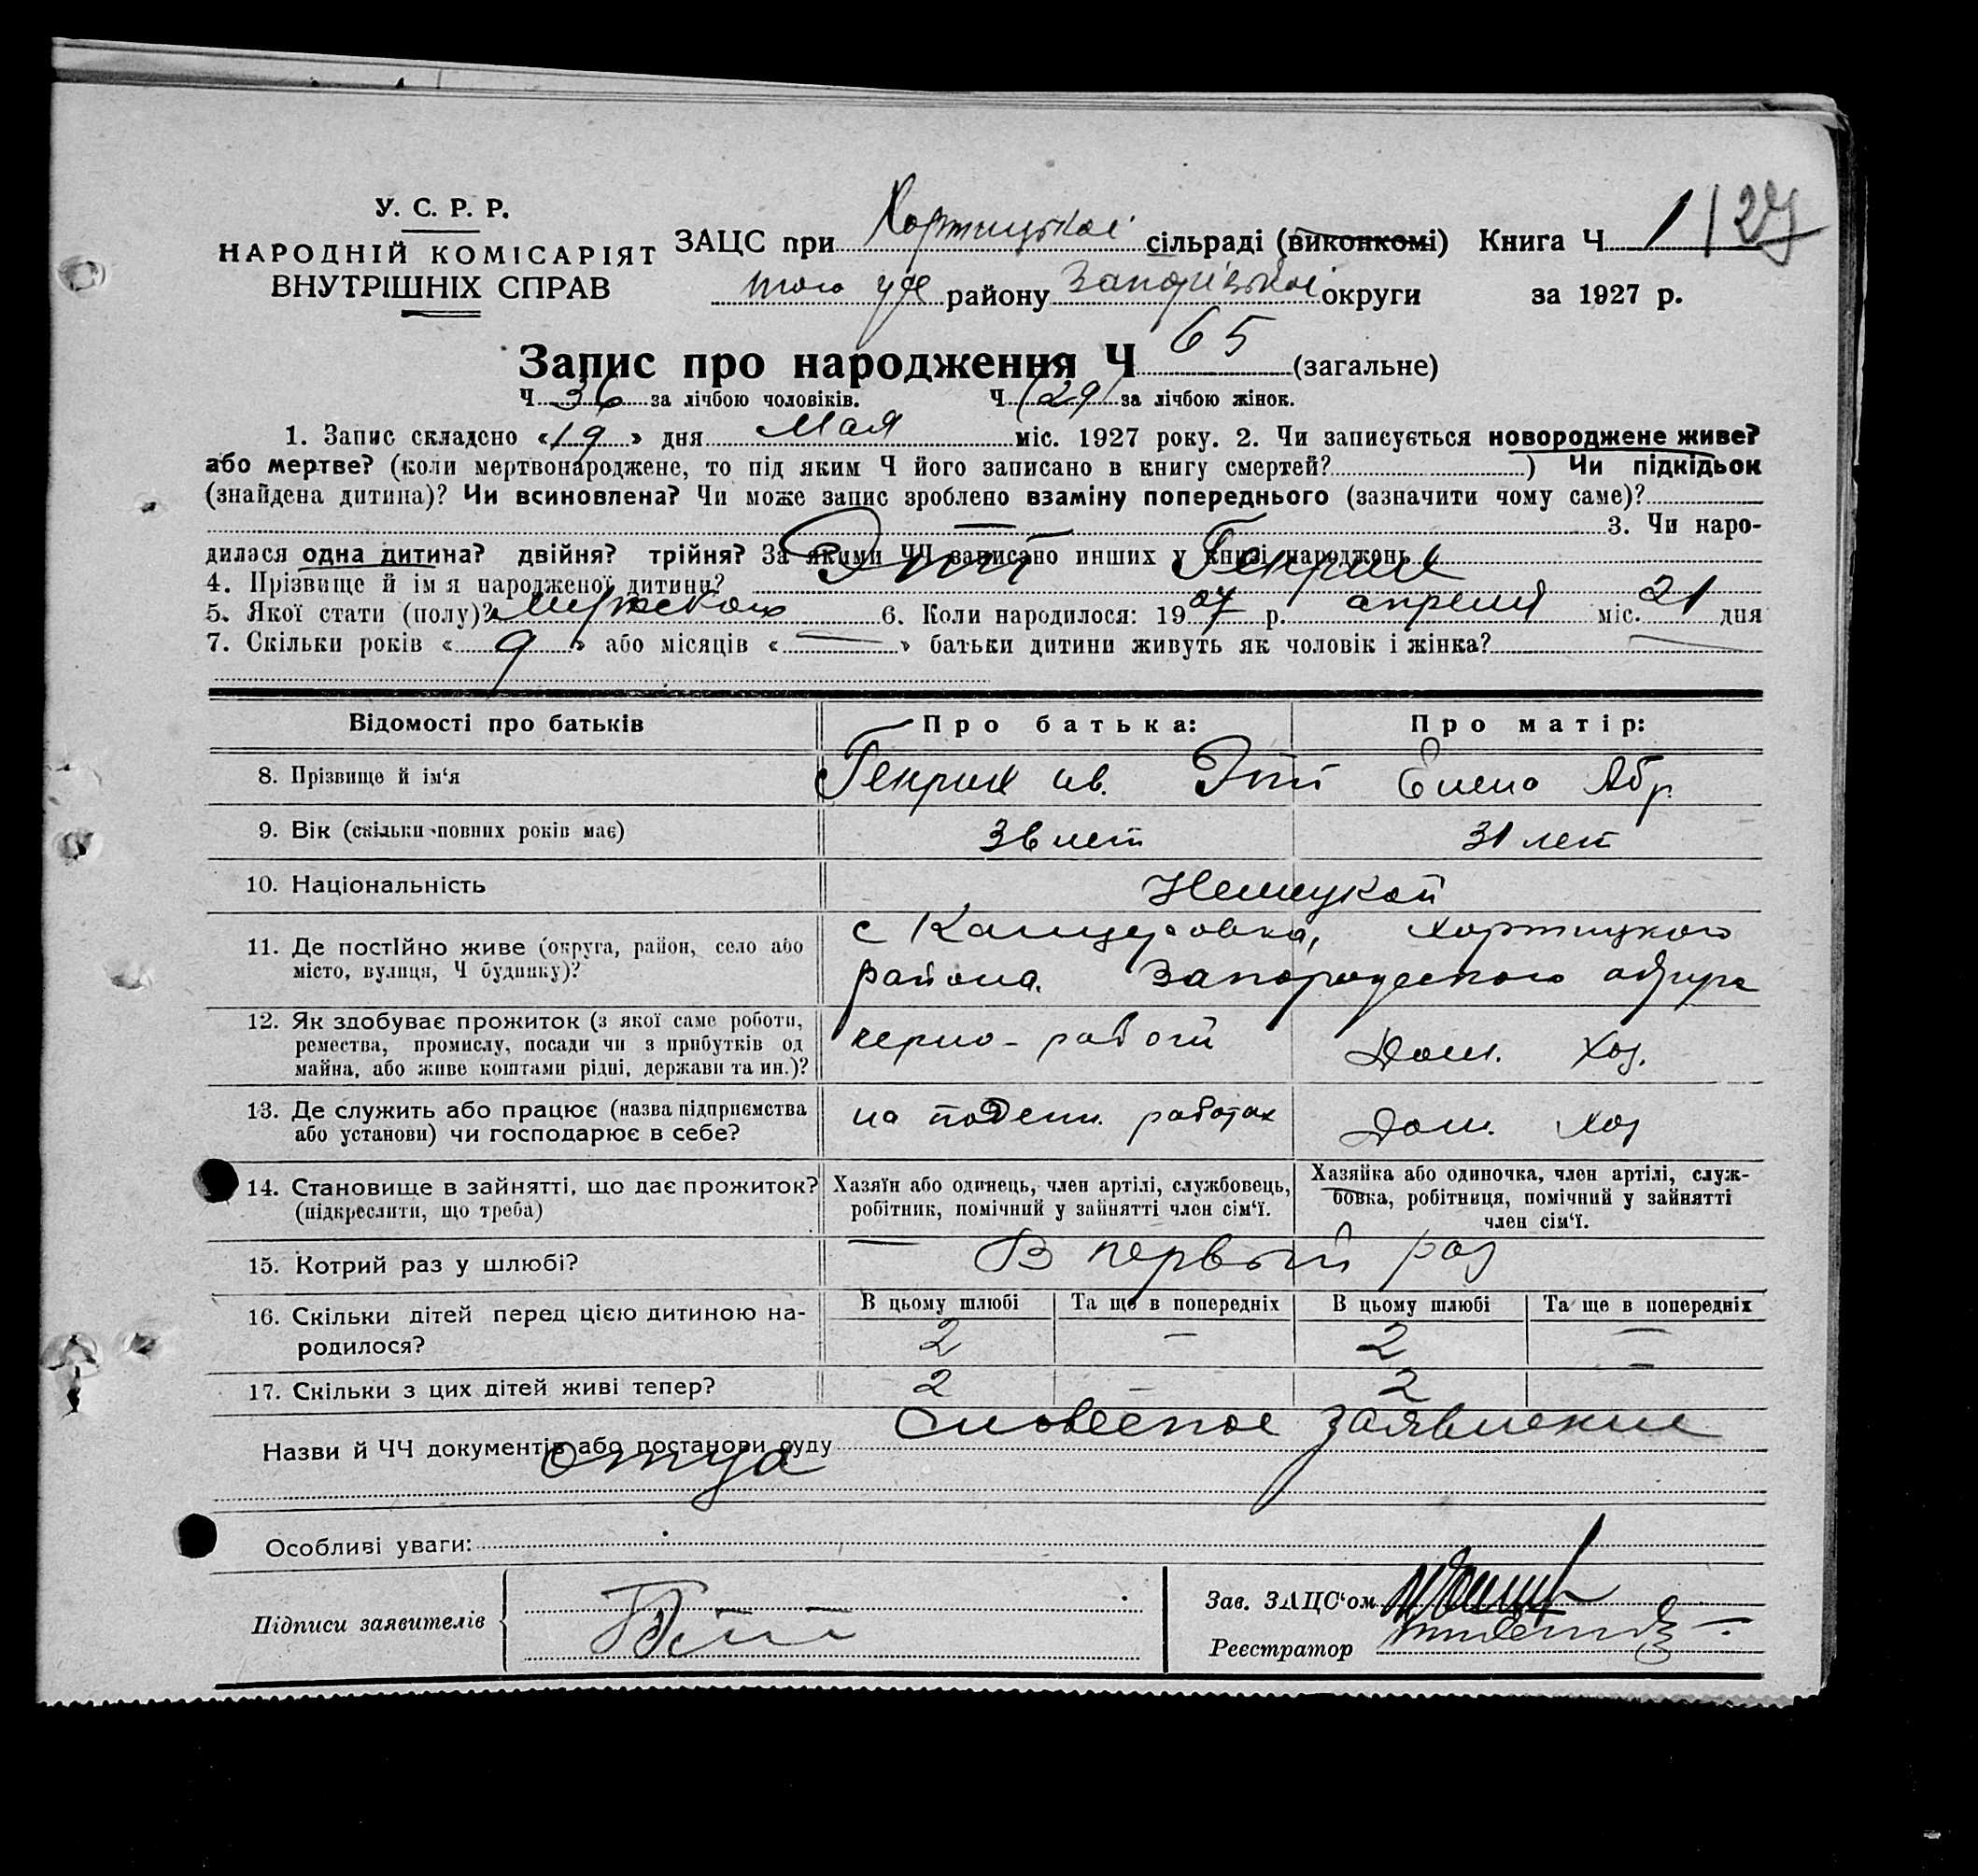 У. С. Р. Р.
НАРОДНІЙ КОМІСАРІЯТ
ВНУТРІШНІХ СПРАВ
ЗАЦС при Хортицької сільраді (виконкомі) Книга Ч 1 127
того ж району Запорізької округи за 1927 р.
Запис про народження Ч 65 (загальне)
Ч 36 за лічбою чоловіків. Ч (29) за лічбою жінок.
1. Запис складено «19» дня Мая міс. 1927 року. 2. Чи записується новороджене живе?
або мертве? (коли мертвонароджене, то під яким Ч його записано в книгу смертей? ) Чи підкідьок
(знайдена дитина)? Чи всиновлена? Чи може запис зроблено взаміну попереднього (зазначити чому саме)?
— 3. Чи наро-
дилася одна дитина? двійня? трійня? За якими ЧЧ записано инших у книзі народжень
4. Прізвище й ім'я народженої дитини?Эпп Генрих
5. Якої стати (полу)? Мужского 6. Коли народилося: 1927 р. апреля міс. 21 дня
7. Скільки років «9» або місяців «—» батьки дитини живуть як чоловік і жінка? —
Відомості про батьків Про батька: Про матір:
8. Прізвище й ім'я Генрих Ив. Эпп Елена Абр.
9. Вік (скільки повних років має) 36 лет 31 лет
10. Національність Немецкой
11. Де постійно живе (округа, район, село або с Канцеровка, Хортицкого
місто, вулиця, Ч будинку)? района. Запорожского округа
12. Як здобуває прожиток (з якої саме роботи,
ремества, промислу, посади чи з прибутків од черно-работ Дом. Хоз.
майна, або живе коштами рідні, держави та ин.)?
13. Де служить або працює (назва підприємства на поденн. работах Дом. Хоз
або установи) чи господарює в себе?
14. Становище в зайнятті, що дає прожиток? Хазяїн або одинець, член артілі, службовець, Хазяйка або одиночка, член артілі, служ-
(підкреслити, що треба) робітник, помічний у зайнятті член сім'ї. бовка, робітниця, помічний у зайнятті
член сім'ї.
15. Котрий раз у шлюбі? В первый раз
16. Скільки дітей перед цією дитиною на- В цьому шлюбі Та ще в попередніх В цьому шлюбі Та ще в попередніх
родилося? 2 — 2 —
17. Скільки з цих дітей живі тепер? 2 — 2 —
Назви й ЧЧ документів або постанови суду Словесное заявление
отца
Особливі уваги:
Підписи заявителів
Зав. ЗАЦС'ом
Реєстратор